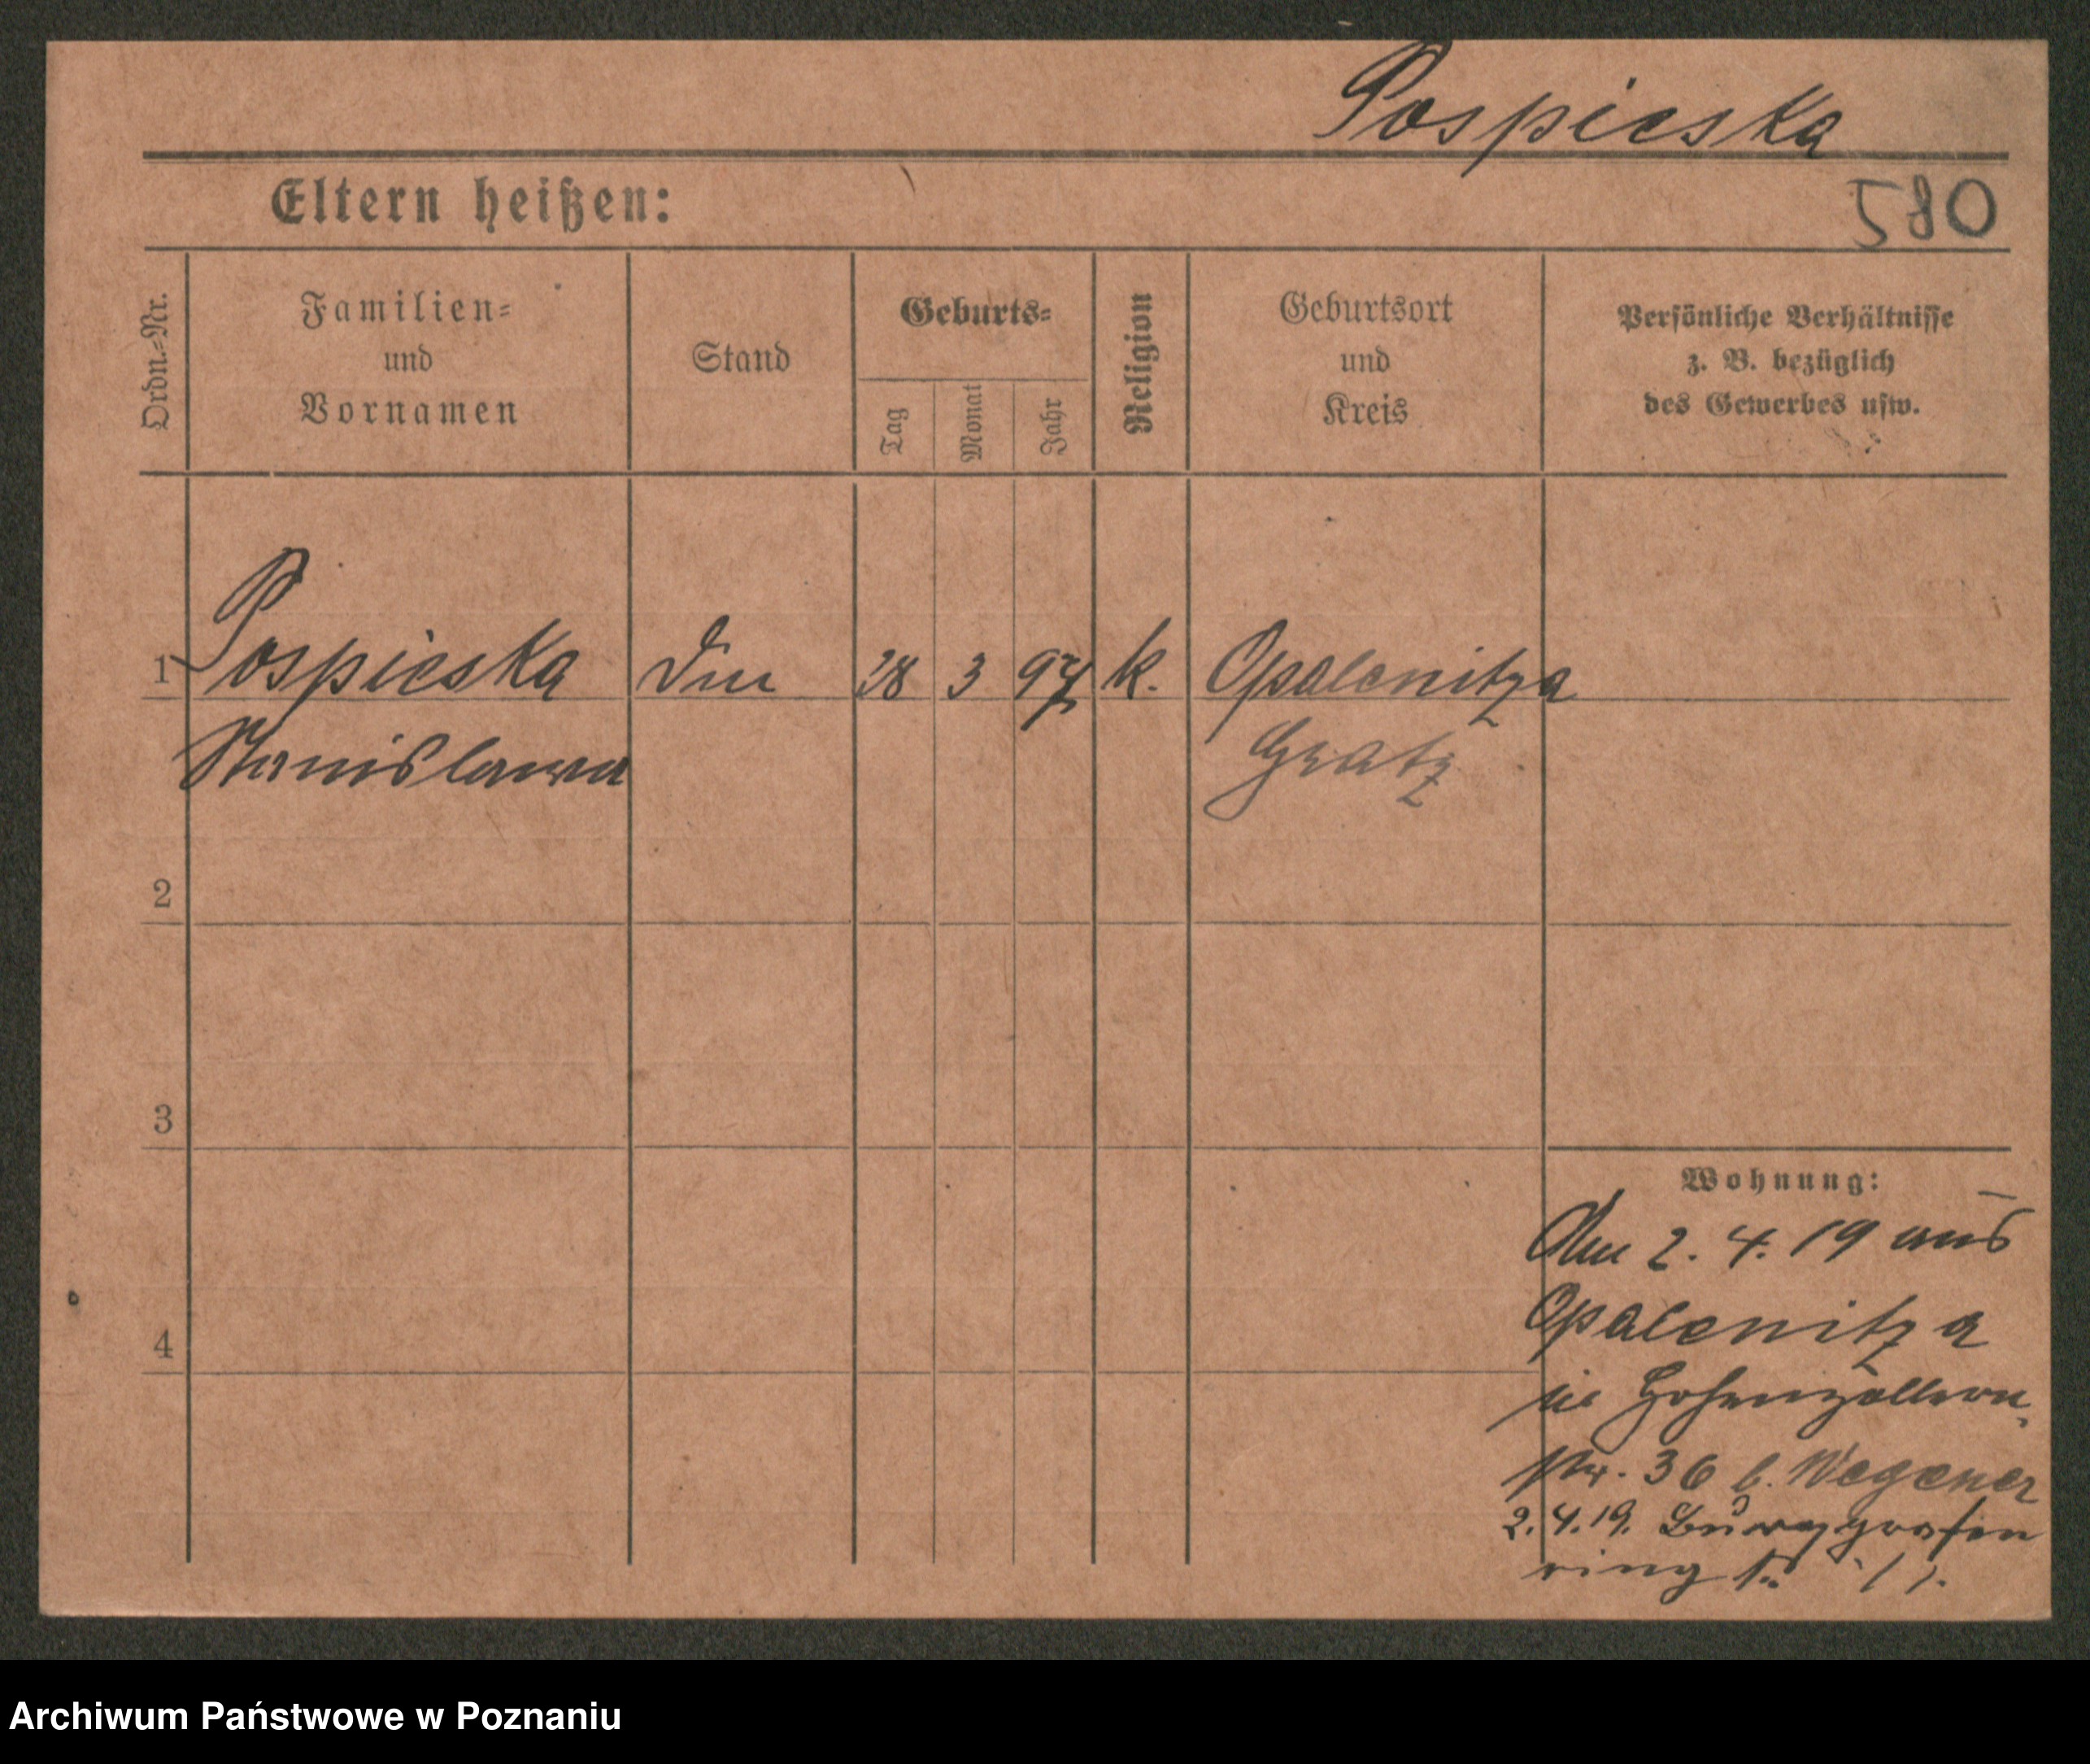 Pospieska
Eltern heißen:
580
Ordn.-Nr.
Familien-
und
Vornamen
Stand
Geburts-
Tag
Monat
Jahr
Religion
Geburtsort
und
Kreis
Persönliche Verhältnisse
z. B. bezüglich
des Gewerbes usw.
1 Pospieska 28 3 97 k. Opalenitza
Stanislawa Gratz
2
3
4
Wohnung:
Am 2. 4. 19 aus
Opalenitza
in Hohenzollern
str. 36 b. Wegener
2.4.19. Burggrafen
ring
Archiwum Państwowe w Poznaniu